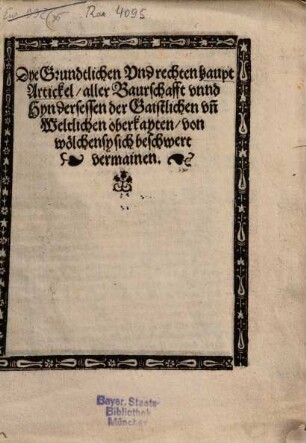 Rar 4095
Dye Grundtlichen Vnd rechten haupt
Artickel / aller Baurschafft vnnd
Hyndersessen der Gaistlichen vñ
Weltlichen oberkayten / von
wölchen sy sich beschwert
vermainen.
Bayer. Staats-
Bibliothek
München